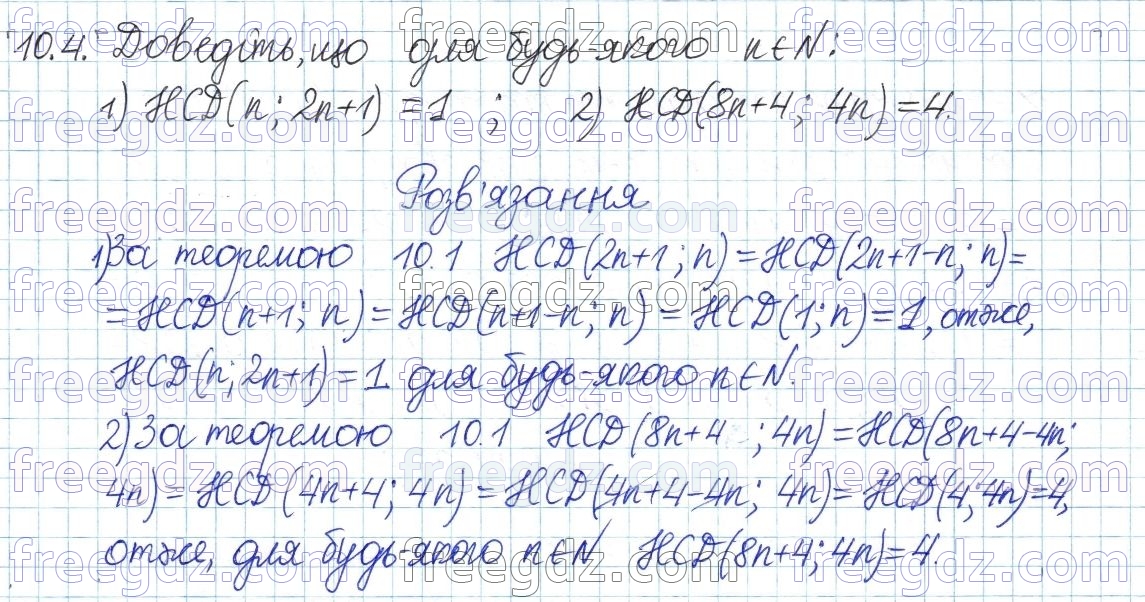 10.4. Доведіть, що для будь-якого n∈N:
1) НСД(n; 2n+1) = 1 ; 2) НСД(8n+4; 4n) = 4.
Розв'язання
1) За теоремою 10.1 НСД(2n+1; n) = НСД(2n+1-n; n) =
= НСД(n+1; n) = НСД(n+1-n; n) = НСД(1; n) = 1, отже,
НСД(n; 2n+1) = 1 для будь-якого n∈N.
2) За теоремою 10.1 НСД(8n+4 ; 4n) = НСД(8n+4-4n;
4n) = НСД(4n+4; 4n) = НСД(4n+4-4n; 4n) = НСД(4; 4n) = 4,
отже, для будь-якого n∈N НСД(8n+4; 4n) = 4.